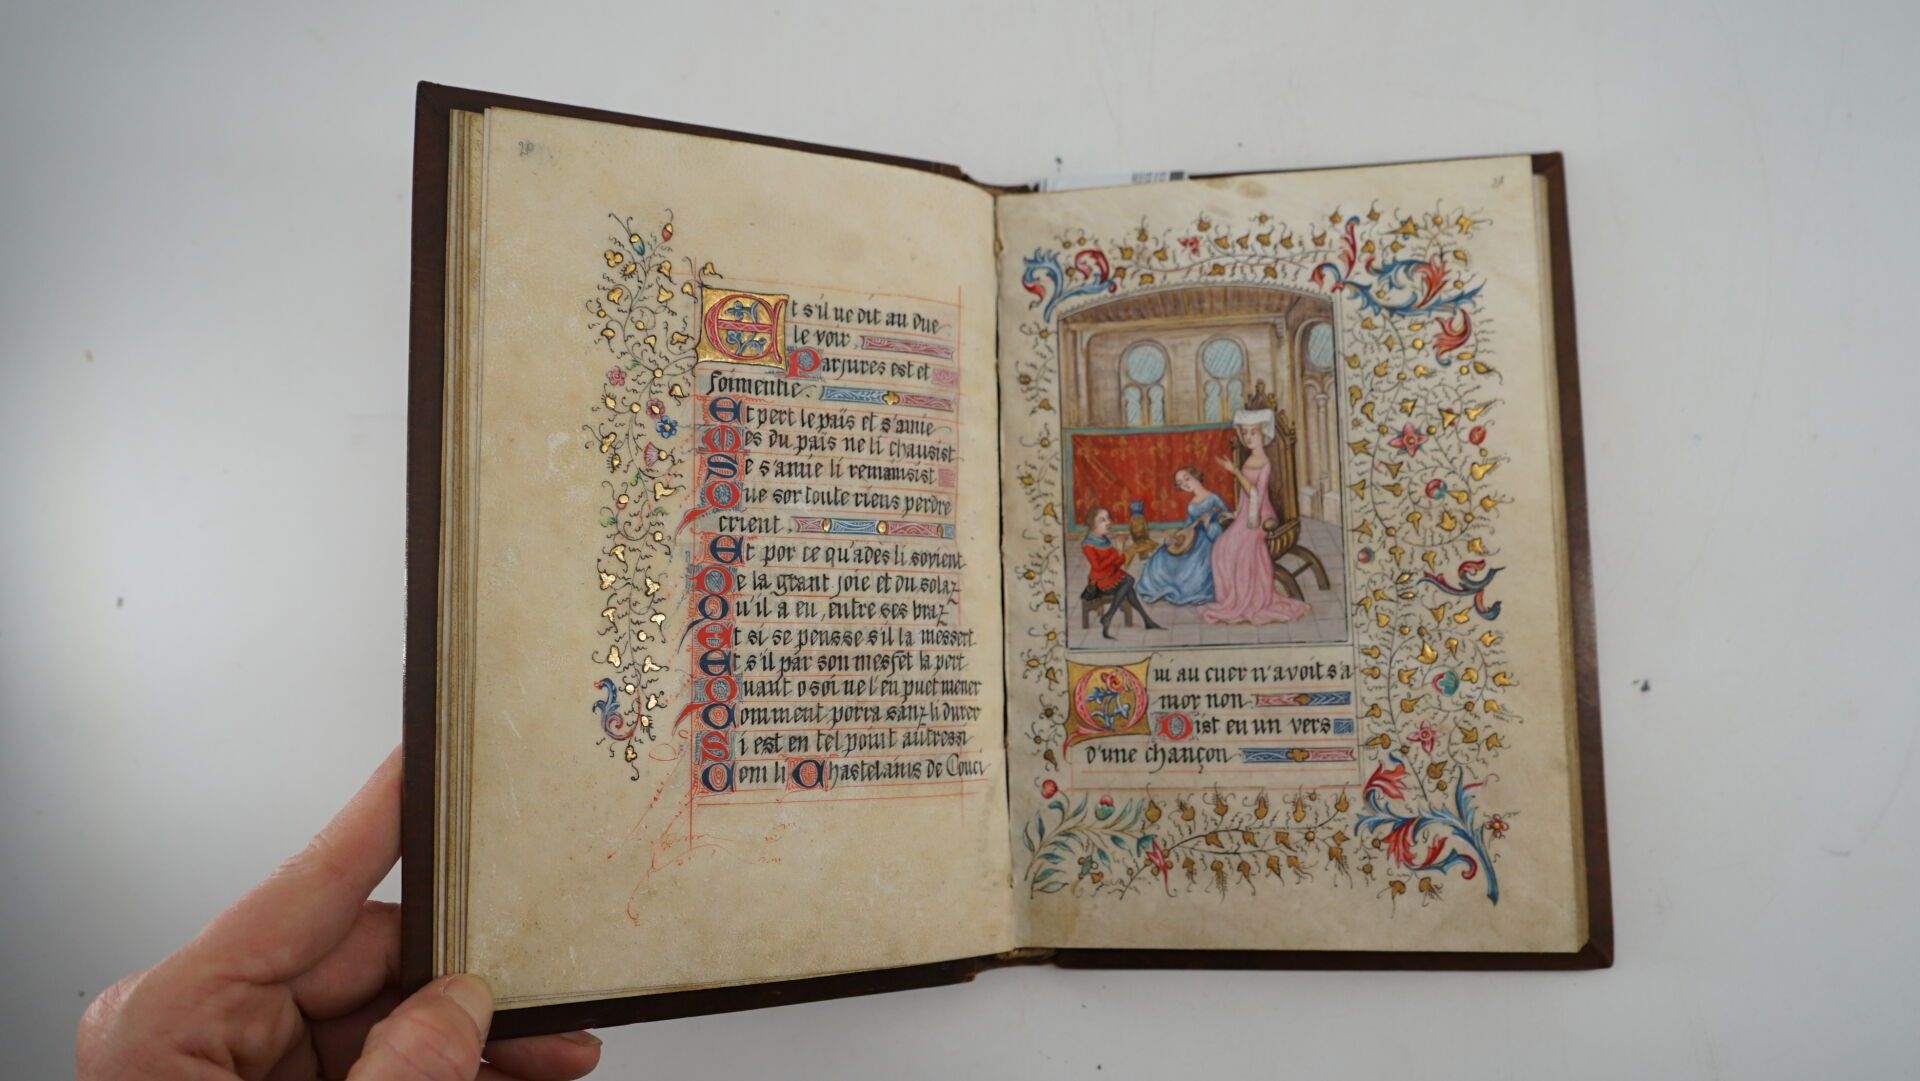 Et s'il ne dit au duc
le voir.
Parjures est et
foimentie.
Et pert le païs et s'amie
Mes du païs ne li chausist
Se s'amie li remansist
Que sor toute riens perdre
crient.
Et por ce qu'adès li sovient
De la grant joie et du solaz
Qu'il a eu, entre ses braz
Et si se pensse s'il la messert
Et s'il par son mesfet la pert
Quant o soi ne l'en puet mener
Comment porra sanz li durer
Si est en tel point autressi
Com li Chastelains de Couci
Qui au cuer n'avoit s'a
mor non.
Dist en un vers
d'une chançon